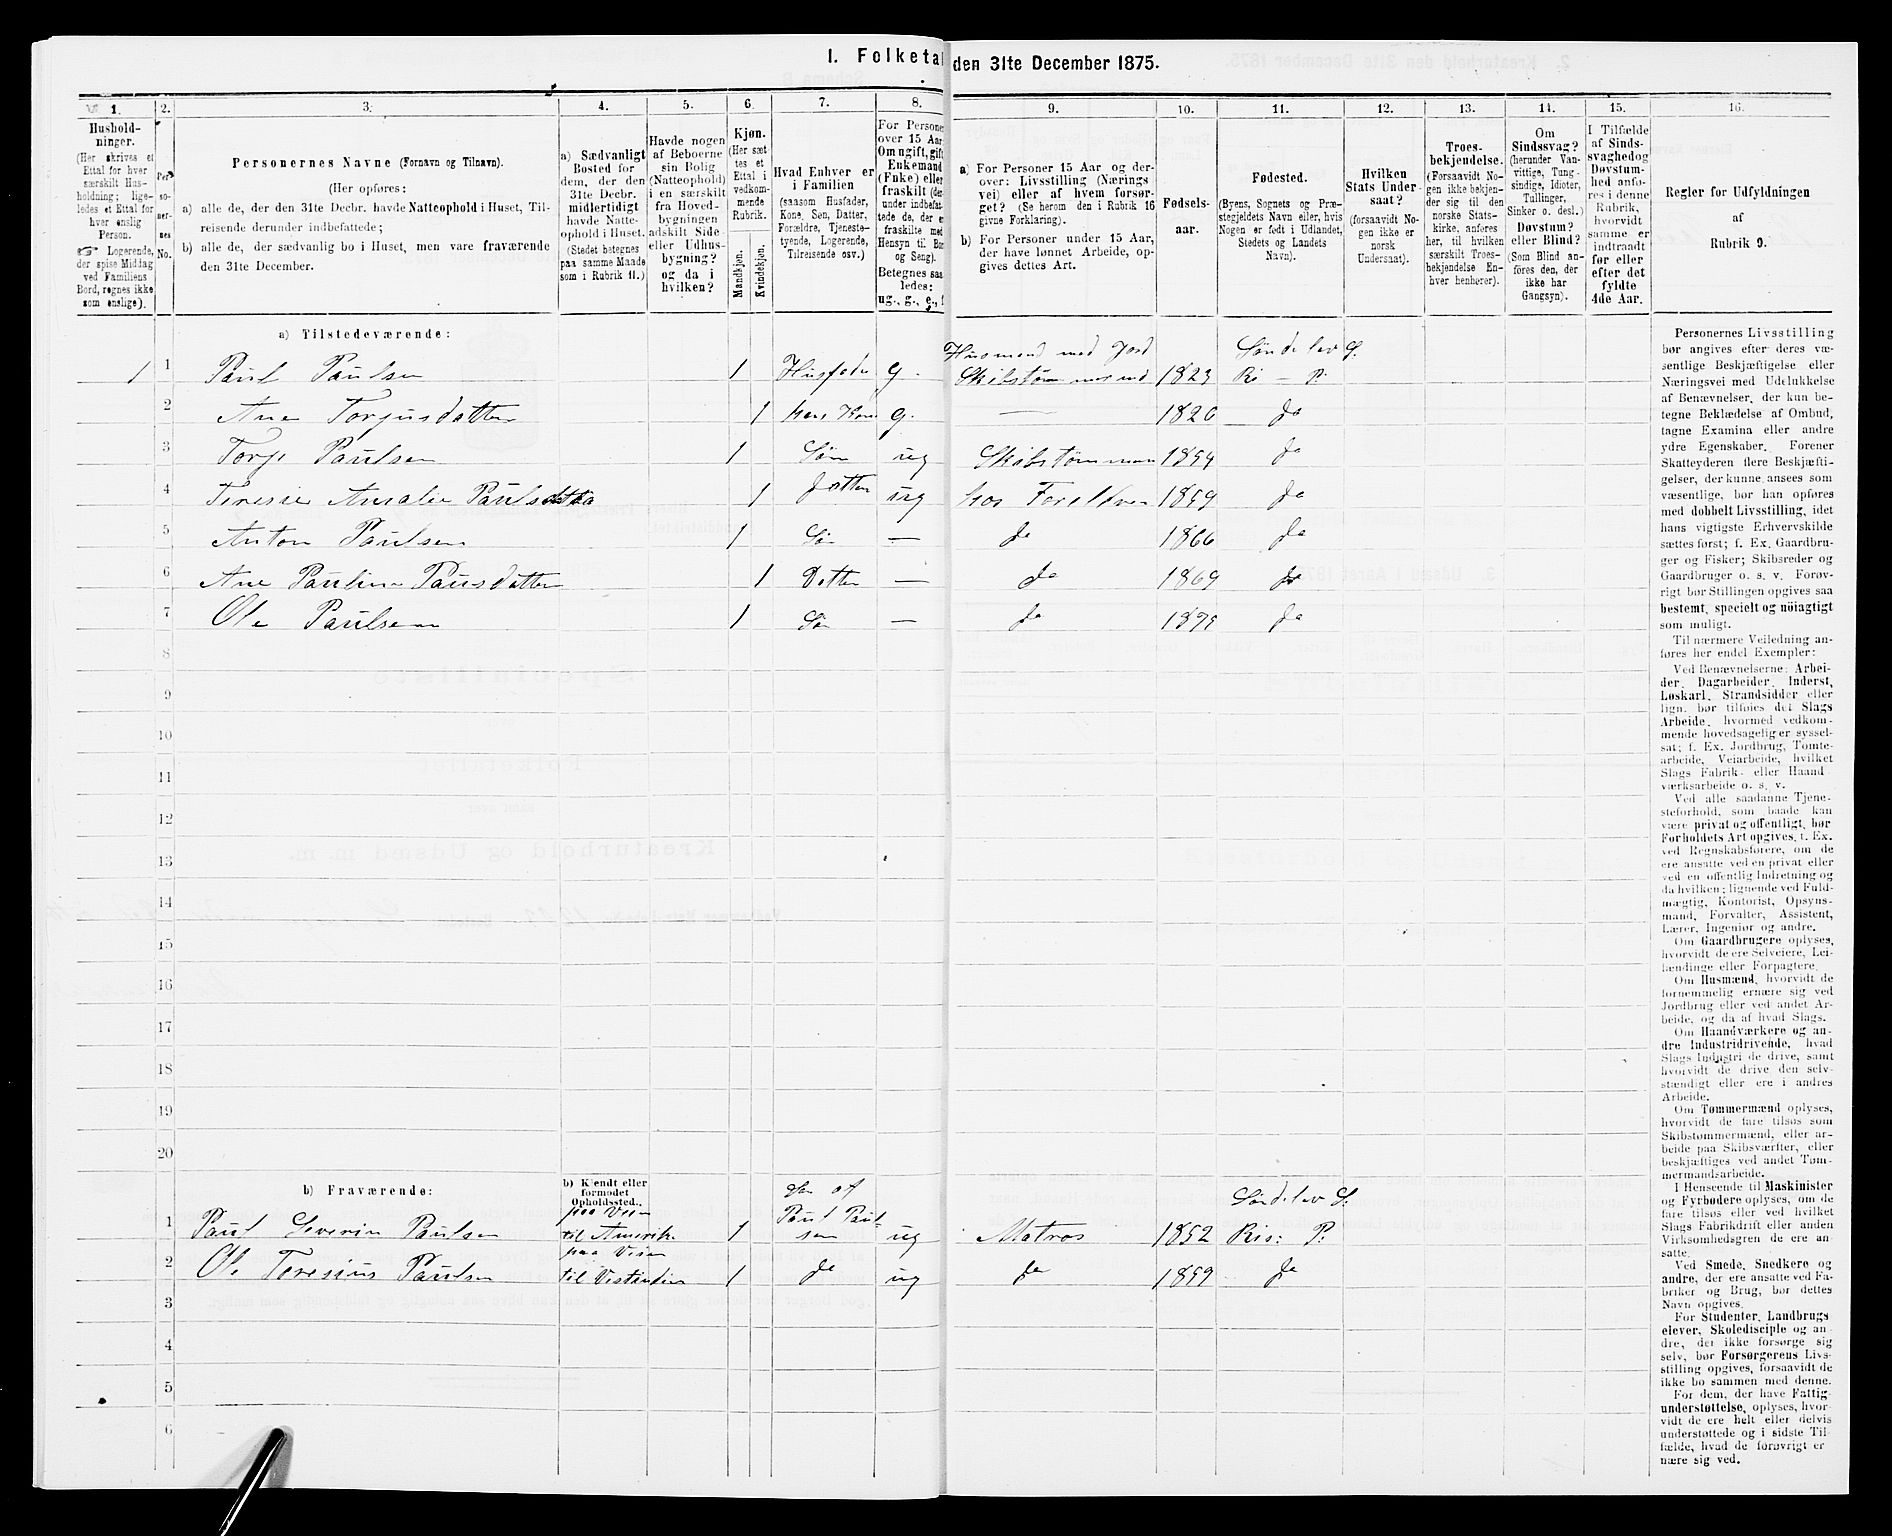 I. Folketal den 31te December 1875.
1. 2. 3. 4. 5. 6. 7. 8. 9. 10. 11. 12. 13. 14. 15. 16.
Hushold-
ninger.
(Her skrives et
Ettal for hver
særskilt Hus-
holdning; lige-
ledes et Ettal for
hver enslig
Person.
☞ Logerende,
der spise Middag
ved Familiens
Bord, regnes ikke
som enslige).
Per-
so-
ner-
nes
No.
Personernes Navne (Fornavn og Tilnavn).
(Her opføres:
a) alle de, der den 31te Decbr. havde Natteophold i Huset, Til-
reisende derunder indbefattede;
b) alle de, der sædvanlig bo i Huset, men vare fraværende
den 31te December.
a) Sædvanligt
Bosted for
dem, der den
31te Decbr.
midlertidigt
havde Natte-
ophold i Huset.
(Stedet betegnes
paa samme Maade
som i Rubrik 11.)
Havde nogen
af Beboerne
sin Bolig
(Natteophold)
i en særskilt
fra Hoved-
bygningen
adskilt Side-
eller Udhus-
bygning?
og da i
hvilken?
Kjøn.
(Her sæt-
tes et
Ettal i
vedkom-
mende
Rubrik.
Mandkjøn.
Kvindekjøn.
Hvad Enhver er
i Familien
(saasom Husfader,
Kone, Søn, Datter,
Forældre, Tjeneste-
tyende, Logerende,
Tilreisende osv.)
For Personer
over 15 Aar
Om ugift, gift
Enkemand
(Enke) eller
fraskilt (der-
under indbefat-
tede de, der er
fraskilte med
Hensyn til Bord
og Seng).
Betegnes saa-
ledes:
ug., g., e., f.
a) For Personer 15 Aar og der-
over: Livsstilling (Nærings-
vei) eller af hvem forsør-
get? (Se herom den i Rubrik 16
givne Forklaring).
b) For Personer under 15 Aar,
der have lønnet Arbeide, op-
gives dettes Art.
Fødsels-
aar.
Fødested.
(Byens, Sognets og Præ-
stegjeldets Navn eller, hvis
Nogen er født i Udlandet,
Stedets og Landets
Navn).
Hvilken
Stats Under-
saat?
(forsaavidt No-
gen ikke er
norsk
Undersaat).
Troes-
bekjendelse.
(Forsaavidt No-
gen ikke bekjen-
der sig til den
norske Stats-
kirke, anføres
her, til hvilken
særskilt Troes-
bekjendelse En-
hver henhører).
Om
Sindssvag?
(herunder Van-
vittige, Tung-
sindige, Idioter,
Tullinger,
Sinker o. desl.)
Døvstum?
eller Blind?
(Som Blind an-
føres den, der
ikke har
Gangsyn).
I Tilfælde
af Sinds-
svaghed og
Døvstum-
hed anfø-
res i denne
Rubrik,
hvorvidt
samme er
indtraadt
før eller
efter det
fyldte
4de Aar.
Regler for Udfyldningen
af
Rubrik 9.
a) Tilstedeværende:
1 1 Paul Paulsen 1 Husfader g. Husmand med Jord Skibstømmermand 1823 Søndelev S. Ris - P:
2 Ane Torjusdatter 1 hans Kone g. — 1826 do
3 Torje Paulsen 1 Søn ug Skibstømmerm 1854 do
4 Teresie Amalie Paulsdatter 1 Datter ug hos Foreldrer 1859 do
5 Anton Paulsen 1 Søn — do 1866 do
6 Ane Pauline Paulsdatter 1 Datter — do 1869 do
7 Ole Paulsen 1 Søn — do do
8
9
10
11
12
13
14
15
16
17
18
19
20
b) Fraværende:
b) Kjendt eller
formodet
Opholdssted.
1 Paul Severin Paulsen paa Veien til Amerika 1 Søn af Paul Paulsen ug Matros 1852 Søndelev S: Ris: P:
2 Ole Teresius Paulsen paa Veien til Vestindien 1 do ug do 1859 do
3
4
5
6
Personernes Livsstilling
bør angives efter deres væ-
sentlige Beskjæftigelse eller
Næringsvei med Udelukkelse
af Benævnelser, der kun be-
tegne Beklædelse af Ombud,
tagne Examina eller andre
ydre Egenskaber. Forener
Skatteyderen flere Beskjæfti-
gelser, der kunne ansees som
væsentlige, bør han opføres
med dobbelt Livsstilling, idet
hans vigtigste Erhvervskilde
sættes først; f. Ex. Gaardbru-
ger og Fisker; Skibsreder og
Gaardbruger o. s. v. Forøv-
rigt bør Stillingen opgives saa
bestemt, specielt og nöiagtigt
som muligt.
Til nærmere Veiledning an-
føres her endel Exempler:
Ved Benævnelserne: Arbei-
der, Dagarbeider, Inderst,
Løskarl, Strandsidder eller
lign. bør tilføies det Slags
Arbeide, hvormed vedkom-
mende hovedsagelig er syssel-
sat; f. Ex. Jordbrug, Tomte-
arbeide, Veiarbeide, hvilket
Slags Fabrik- eller Haand-
værksarbeide o. s. v.
Ved alle saadanne Tjene-
steforhold, som baade kan
være privat og offentligt, bør
Forholdets Art opgives, t. Ex.
ved Regnskabsførere, om de
ere ansatte ved en privat eller
ved en offentlig Indretning og
da hvilken; lignende ved Fuld-
mægtig, Kontorist, Opsyns-
mand, Forvalter, Assistent,
Lærer, Ingeniør og andre.
Om Gaardbrugere oplyses,
hvorvidt de ere Selveiere, Lei-
lændinge eller Forpagtere.
Om Husmænd, hvorvidt de
fornemmelig ernære sig ved
Jordbrug eller ved andet Ar-
beide, og da af hvad Slags.
Om Haandværkere og an-
dre Industridrivende, hvad
Slags Industri de drive, samt
hvorvidt de drive den selv-
stændigt eller ere i andres
Arbeide.
Om Tømmermænd oplyses,
hvorvidt de fare tilsøs som
Skibstømmermænd, eller ar-
beide paa Skibsværfter, eller
beskjæftiges ved andet Tøm-
mermandsarbeide.
I Henseende til Maskinister
og Fyrbødere oplyses, om de
fare tilsøs eller ved hvilket
Slags Fabrikdrift eller anden
Virksomhedsgren de ere an-
satte.
Ved Smede, Snedkere og
andre, der ere ansatte ved Fa-
briker og Brug, bør dettes
Navn opgives.
For Studenter, Landbrugs-
elever, Skoledisciple og an-
dre, der ikke forsørge sig
selv, bør Forsørgerens Livs-
stilling opgives, forsaavidt de
ikke bo sammen med denne.
For dem, der have Fattig-
understøttelse, oplyses, hvor-
vidt de ere helt eller delvis
understøttede og i sidste Til-
fælde, hvad de forøvrigt er-
nære sig ved.